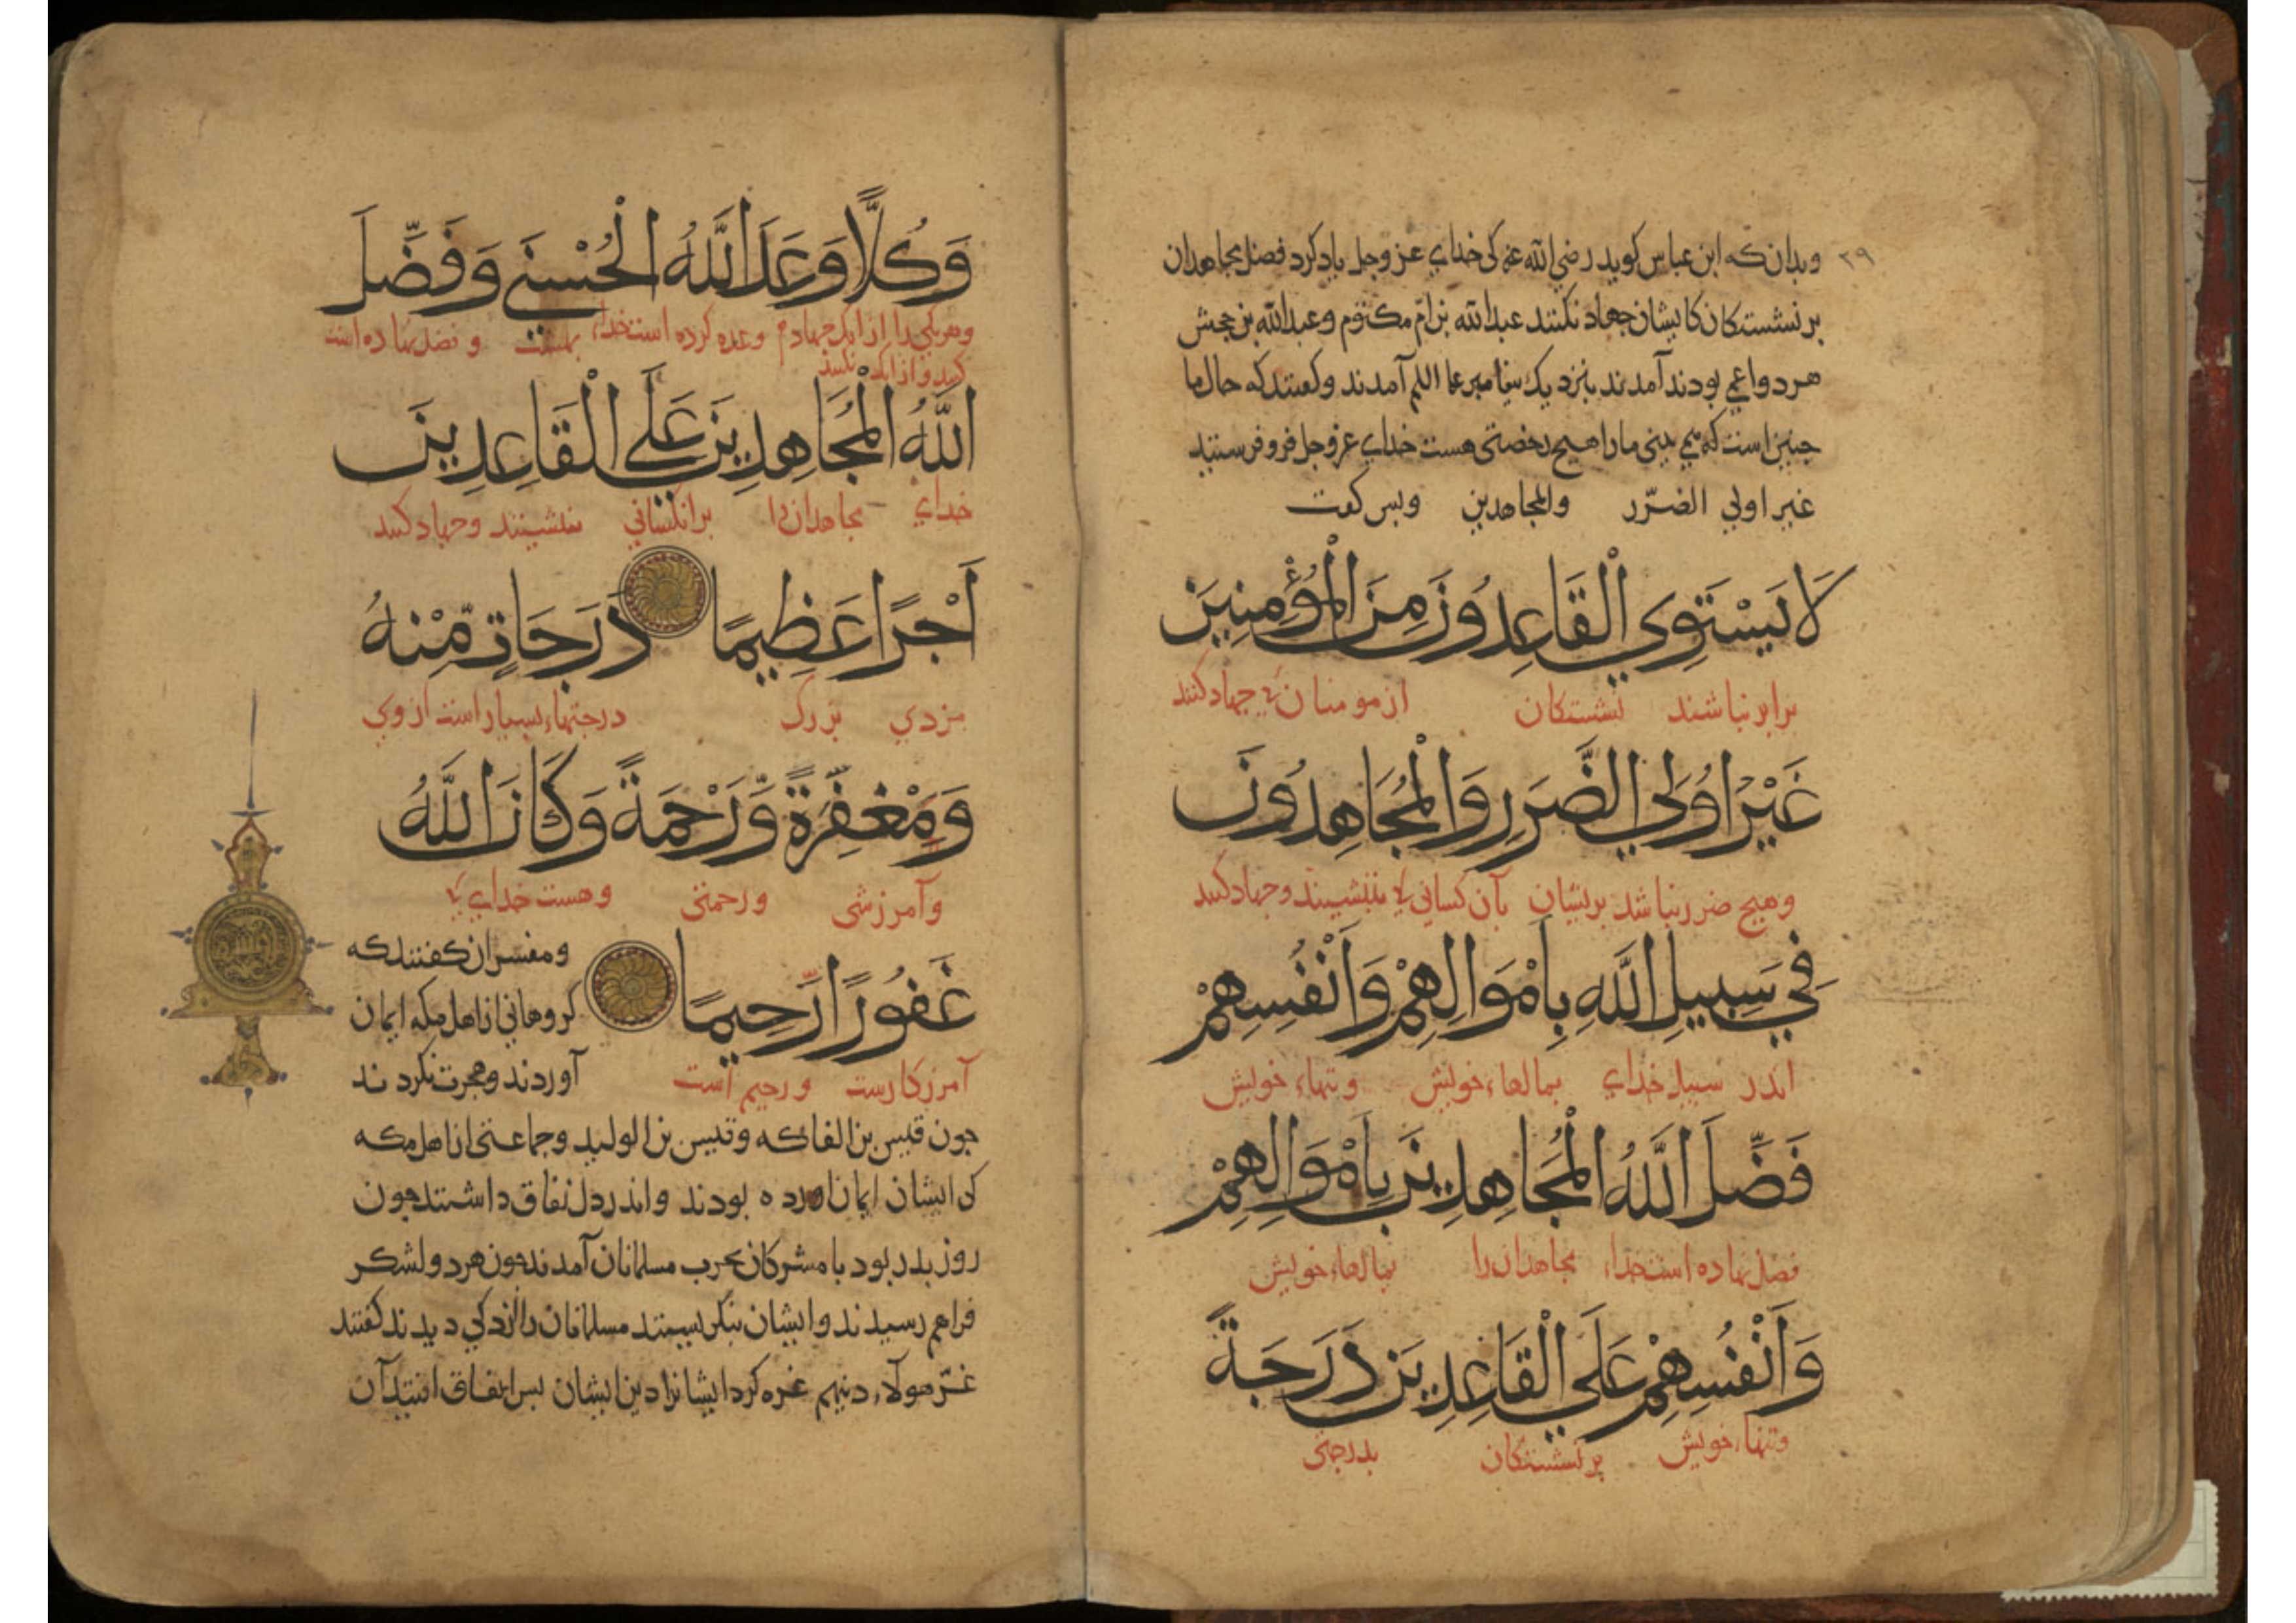 ٢٩
وبدان که ابن عباس کوید رضي الله عنه کی خدای عز وجل یاد کرد فضل مجاهدان
بر نشستکان کایشان جهاد نکنند عبد الله بن ام مکتوم وعبد الله بن جحش
هر دو اعمی بودند آمدند بنزدیک پیغامبر علم آمدند وکفتند که حال ما
جنین است که می بینی ما را هیچ رخصتی هست خدای عز وجل فرو فرستید
غیر اولي الضرر والمجاهدین وبس کفت
لَا يَسْتَوِي الْقَاعِدُونَ مِنَ الْمُؤْمِنِينَ
برابر نباشند نشستکان از مومنان کی جهاد کنند
غَيْرُ اُولِي الضَّرَرِ وَالْمُجَاهِدُونَ
وهیج ضرر نباشد بریشان بآن کسانی کی بنشینند وجهاد کنند
فِي سَبِيلِ اللَّهِ بِاَمْوَالِهِمْ وَاَنْفُسِهِمْ
اندر سبیل خدای بمالهاء خویش وتنهاء خویش
فَضَّلَ اللَّهُ الْمُجَاهِدِينَ بِاَمْوَالِهِمْ
فضل نهاده است خداء مجاهدان را بمالهاء خویش
وَاَنْفُسِهِمْ عَلَي الْقَاعِدِينَ دَرَجَةً
وتنهاء خویش بر نشستکان بدرجتی
وَكُلًّا وَعَدَ اللَّهُ الْحُسْنَي وَفَضَّلَ
وهر یکی را از انک جهاد وعده کرده است خداء بهشت و فضل نهاده است
کنند واز انک نکنند
اللَّهُ الْمُجَاهِدِينَ عَلَي الْقَاعِدِينَ
خدای مجاهدان را بر انکسانی بنشینند وجهاد کنند
اَجْرًا عَظِيمًا دَرَجَاتٍ مِّنْهُ
مزدی بزرک درجتهاء بسیار است از وی
وَمَغْفِرَةً وَّرَحْمَةً وَكَانَ اللَّهُ
وآمرزشی ورحمتی وهست خدای کی
غَفُورًا رَّحِيمًا
آمرزکارست ورحیم است
ومفسران کفتند که
کروهانی از اهل مکه ایمان
آوردند وهجرت نکردند
جون قیس بن الفاکه وقیس بن الولید وجماعتی از اهل مکه
کی ایشان ایمان آورده بودند واندر دل نفاق داشتند جون
روز بدر بود با مشرکان بحرب مسلمانان آمدند جون هر دو لشکر
فراهم رسیدند وایشان بنکریستند مسلمانان را اندکی دیدند کفتند
غرّ هولاء دینهم غره کرد ایشانرا دین ایشان بس این آن